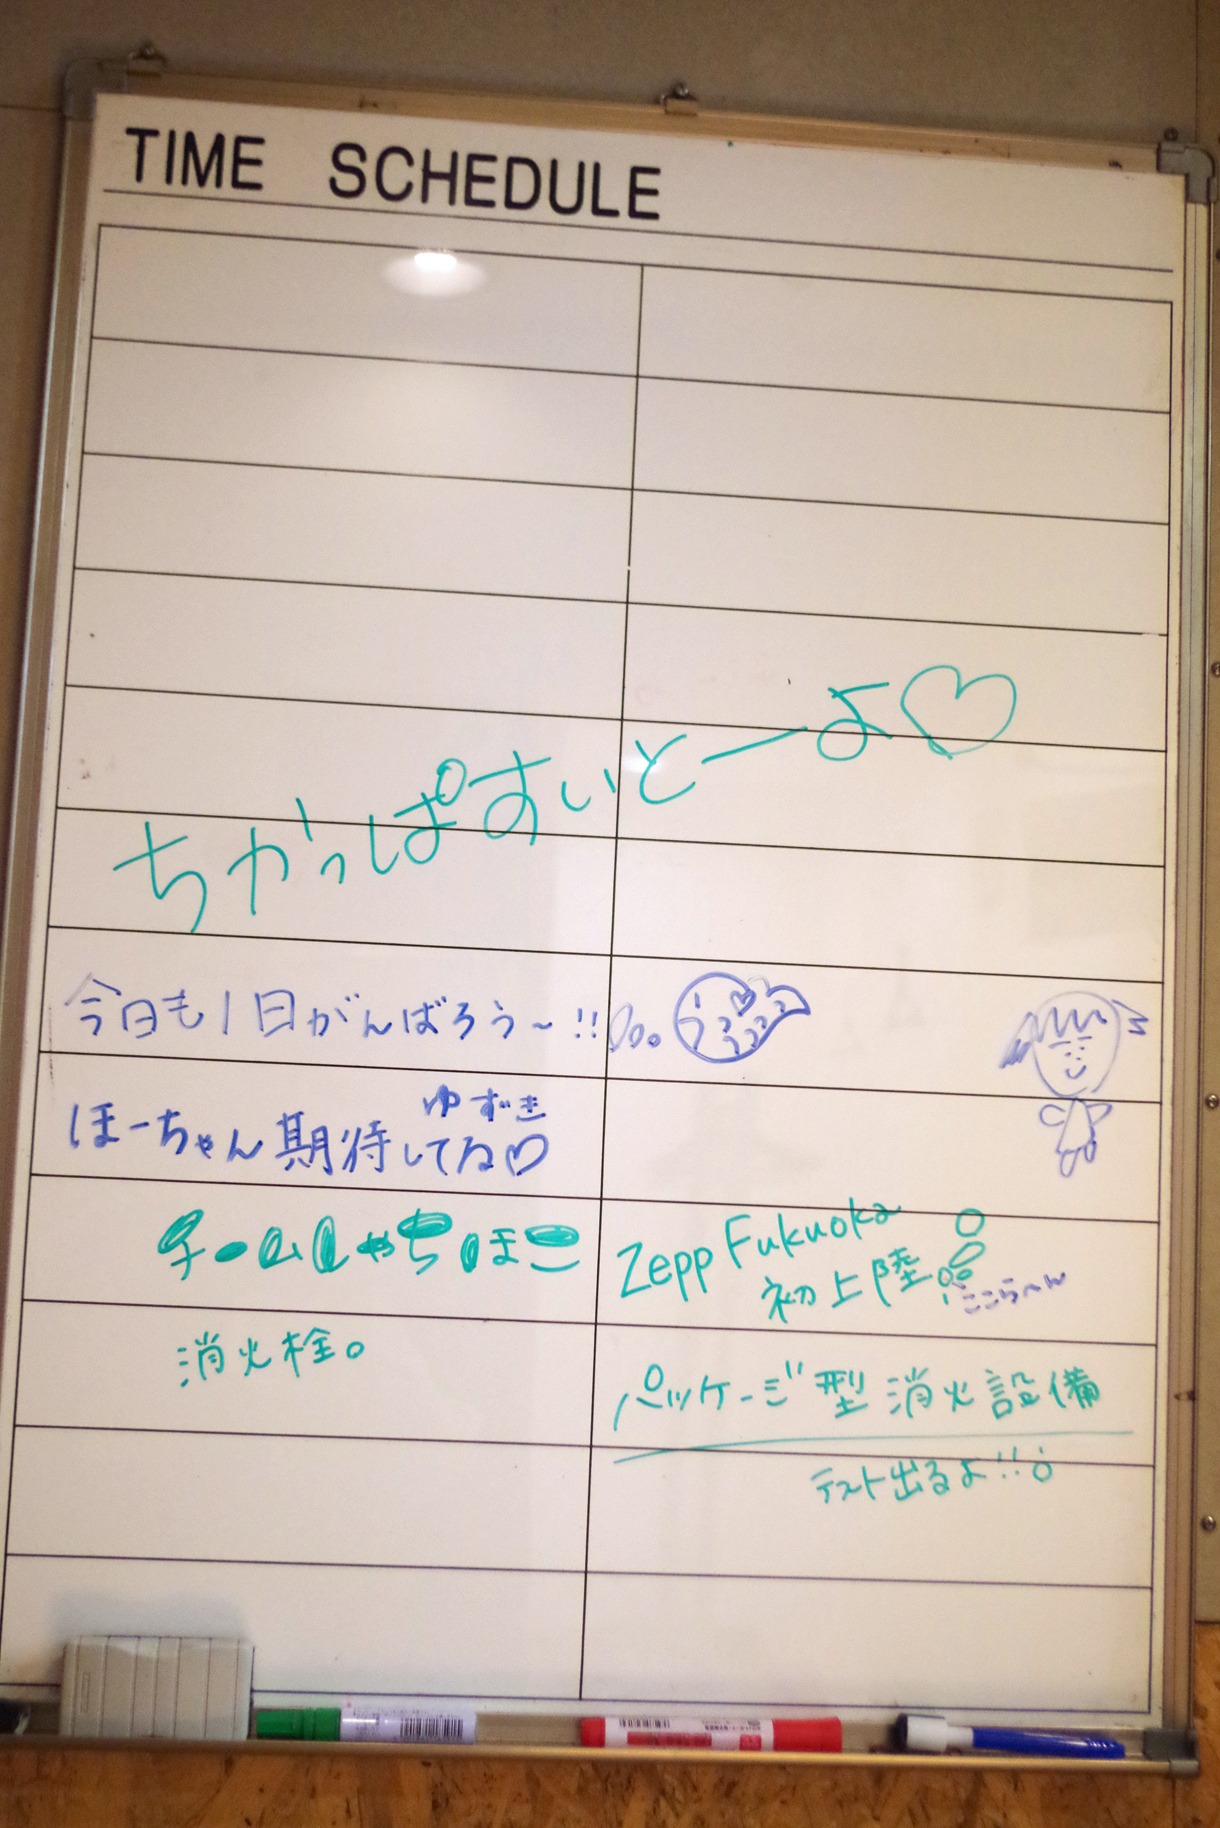 TIME SCHEDULE
ちがっぱすいとーよ♡
今日も1日がんばろう〜!!
ゆずき
ほーちゃん期待してる♡
チームしゃちほこ
Zepp Fukuoka
初上陸
ここらへん
消火栓。
パッケージ型消火設備
テスト出るよ!!